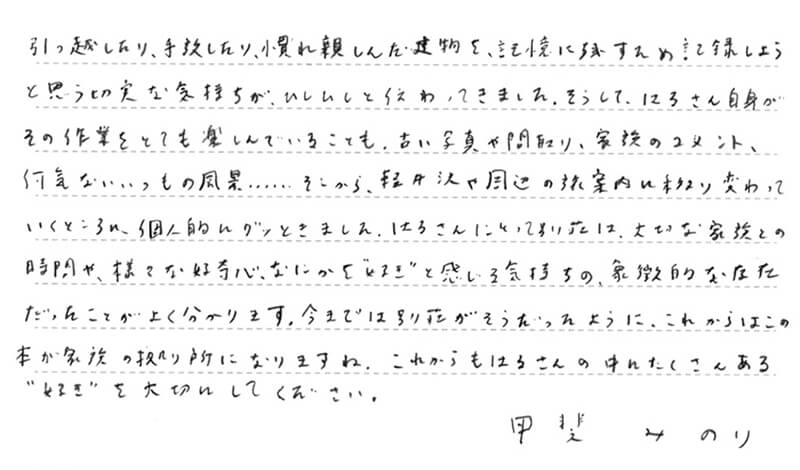 引っ越したり、手放したり、慣れ親しんだ建物を、記憶に残すため記録しよう
と思う切実な気持ちが、ひしひしと伝わってきました。そうして、はるさん自身が
その作業をとても楽しんでいることも。古い写真や間取り、家族のコメント、
何気ないいつもの風景……そこから、軽井沢や周辺の旅案内に移り変わって
いくところに、個人的にグッときました。はるさんにとって別荘は、大切な家族との
時間や、様々な好奇心、なにかを"好き"と感じる気持ちの、象徴的な存在
だったことがよく分かります。今までは別荘がそうだったように、これからはこの
本が家族の拠り所になりますね。これからもはるさんの中にたくさんある
"好き"を大切にしてください。
甲斐 みのり